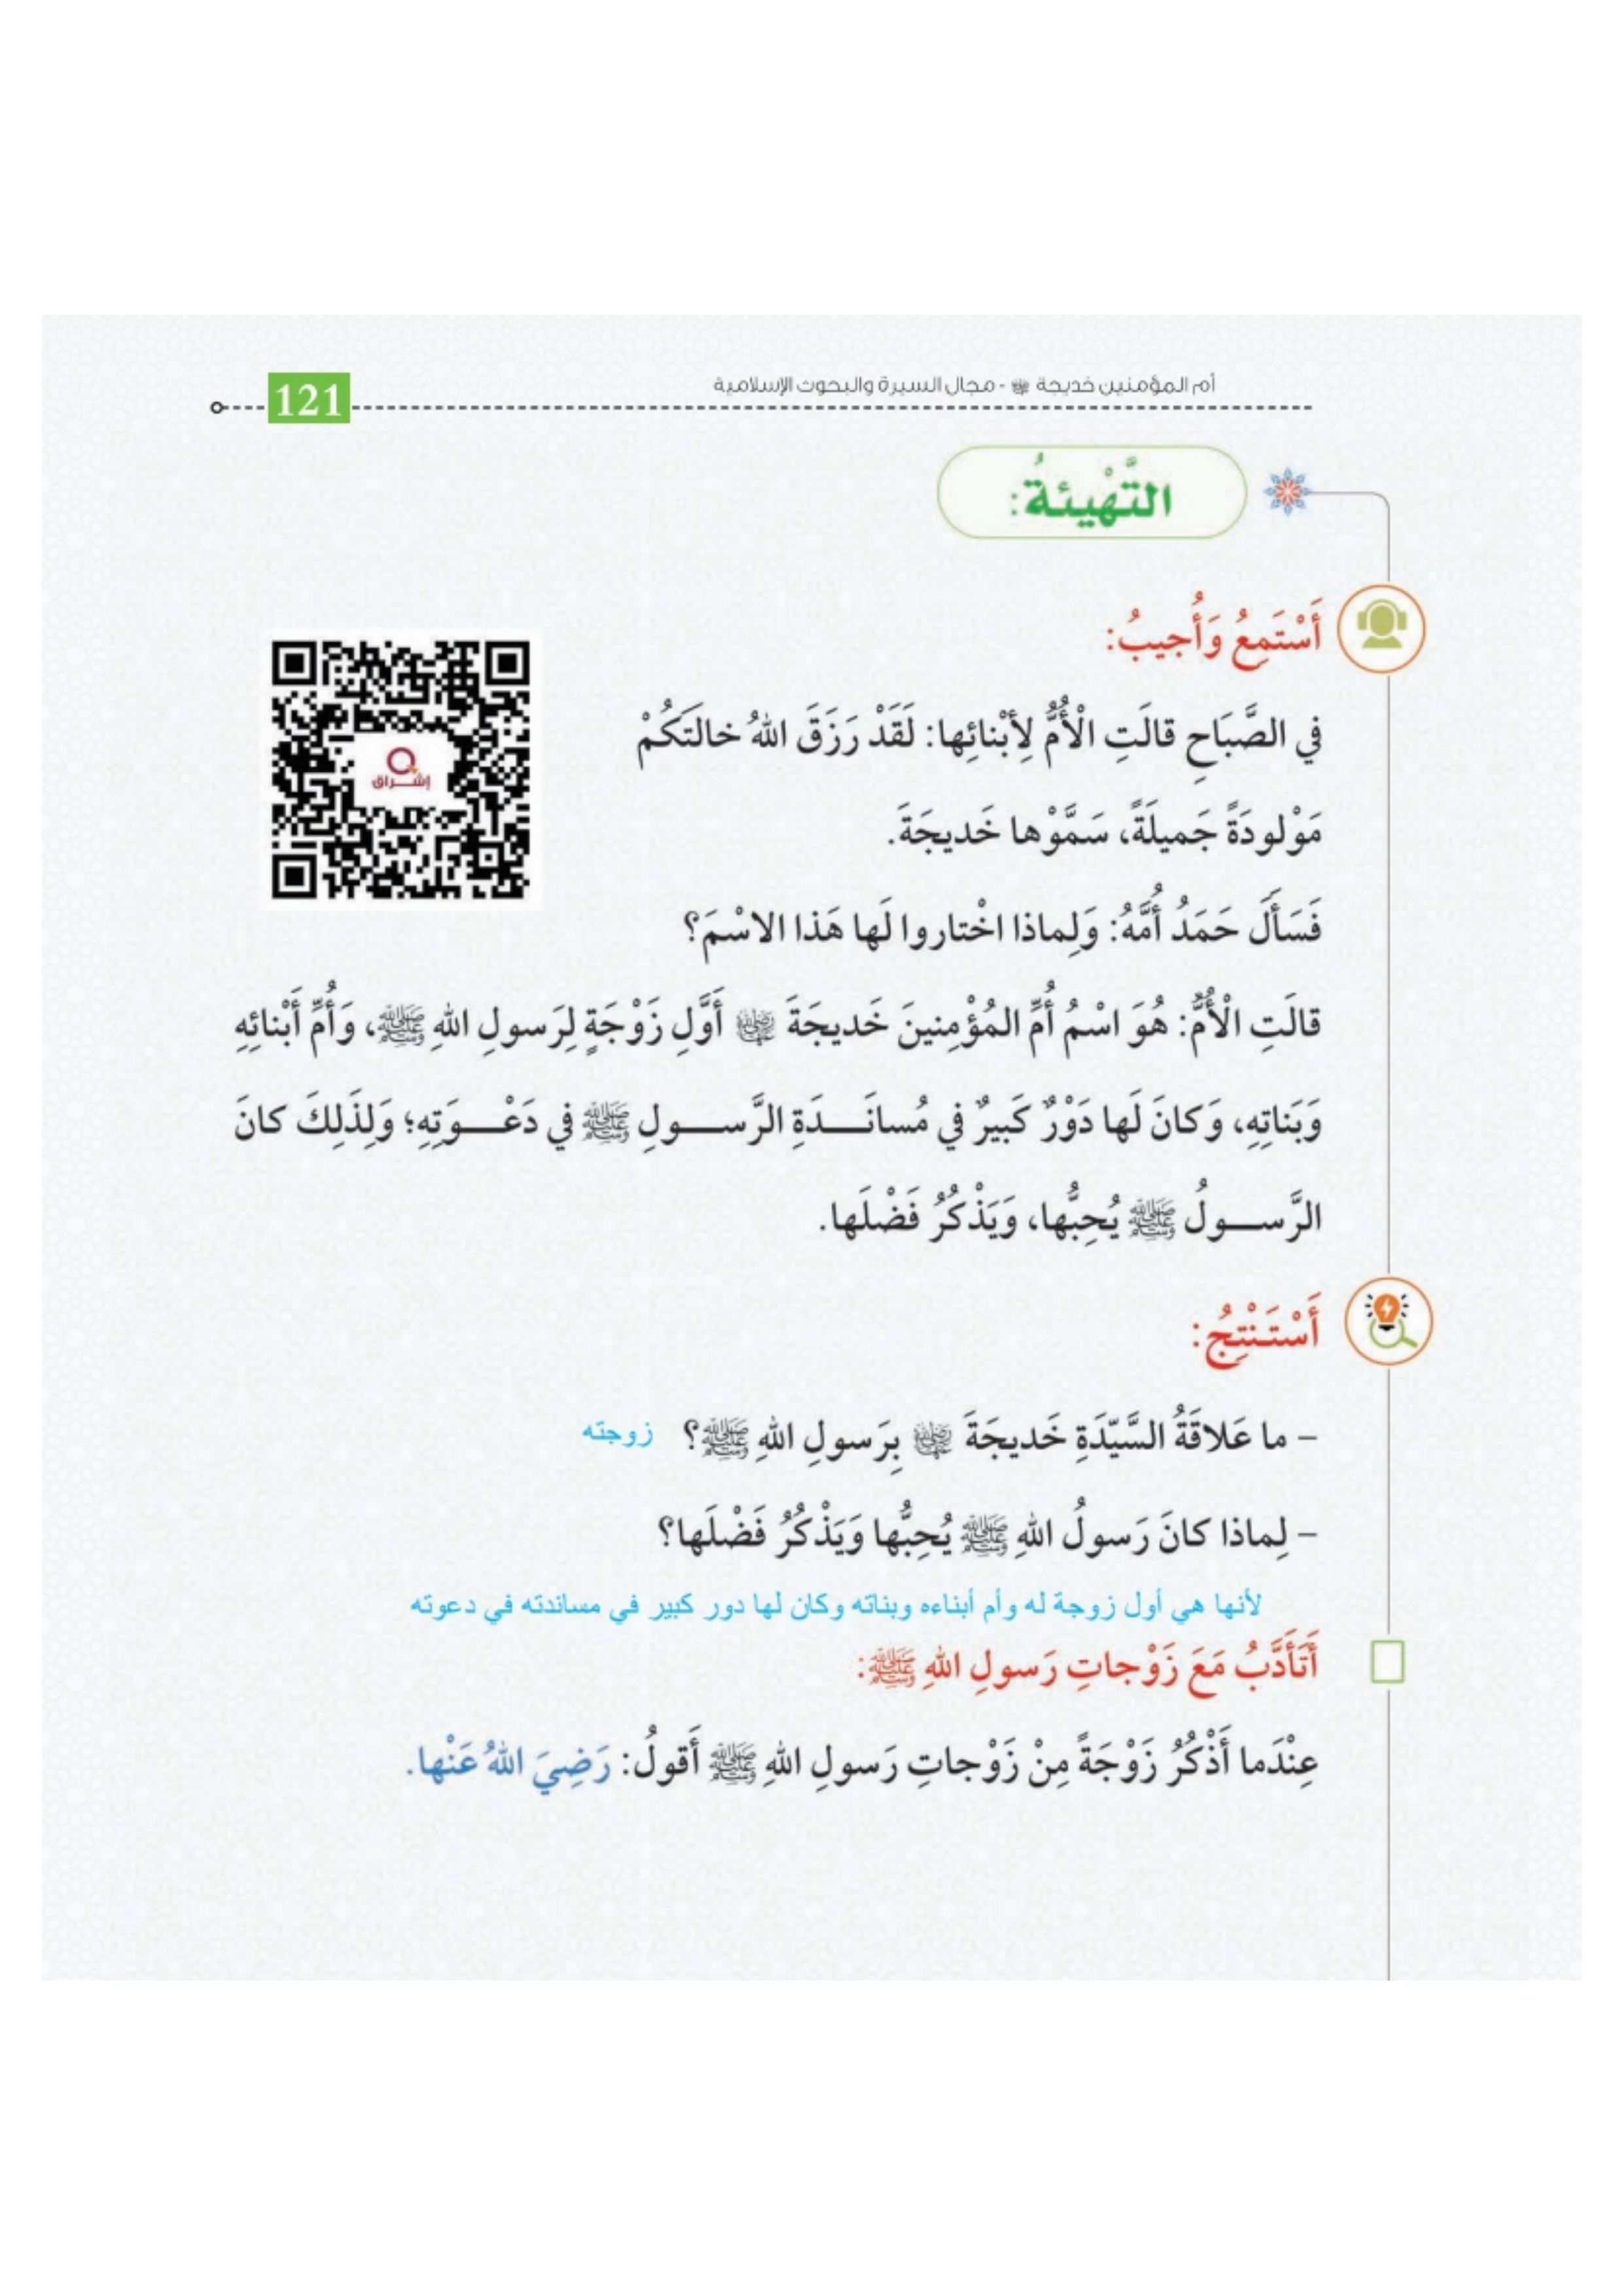 أم المؤمنين خديجة رضي الله عنها - مجال السيرة والبحوث الإسلامية
121
التَّهْيِئَةُ:
أَسْتَمِعُ وَأُجيبُ:
إشراق
في الصَّبَاحِ قالَتِ الْأُمُّ لِأَبْنائِها: لَقَدْ رَزَقَ اللهُ خالَتَكُمْ
مَوْلودَةً جَميلَةً، سَمَّوْها خَديجَةَ.
فَسَأَلَ حَمَدُ أُمَّهُ: وَلِماذا اخْتاروا لَها هَذا الاسْمَ؟
قالَتِ الْأُمُّ: هُوَ اسْمُ أُمِّ المُؤْمِنينَ خَديجَةَ رضي الله عنها أَوَّلِ زَوْجَةٍ لِرَسولِ اللهِ ﷺ، وَأُمِّ أَبْنائِهِ
وَبَناتِهِ، وَكانَ لَها دَوْرٌ كَبيرٌ في مُسانَـــدَةِ الرَّســـولِ ﷺ في دَعْـــوَتِهِ؛ وَلِذَلِكَ كانَ
الرَّســـولُ ﷺ يُحِبُّها، وَيَذْكُرُ فَضْلَها.
أَسْتَنْتِجُ:
– ما عَلاقَةُ السَّيِّدَةِ خَديجَةَ رضي الله عنها بِرَسولِ اللهِ ﷺ؟ زوجته
– لِماذا كانَ رَسولُ اللهِ ﷺ يُحِبُّها وَيَذْكُرُ فَضْلَها؟
لأنها هي أول زوجة له وأم أبناءه وبناته وكان لها دور كبير في مساندته في دعوته
أَتَأَدَّبُ مَعَ زَوْجاتِ رَسولِ اللهِ ﷺ:
عِنْدَما أَذْكُرُ زَوْجَةً مِنْ زَوْجاتِ رَسولِ اللهِ ﷺ أَقولُ: رَضِيَ اللهُ عَنْها.